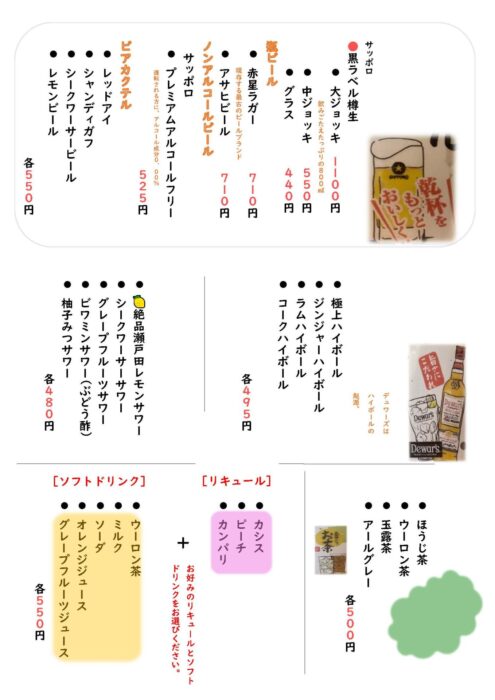 サッポロ
黒ラベル樽生
大ジョッキ 1100円
飲みごたえたっぷりの800ml
中ジョッキ 550円
グラス 440円
瓶ビール
赤星ラガー 710円
現存する最古のビールブランド
アサヒビール 710円
ノンアルコールビール
サッポロ
プレミアムアルコールフリー 525円
運転される方に、アルコール成分0.00%
ビアカクテル
レッドアイ
シャンディガフ
シークワーサービール
レモンビール
各550円
乾杯を
もっと
おいしく。
極上ハイボール
ジンジャーハイボール
ラムハイボール
コークハイボール
各495円
デュワーズは
ハイボールの
起源。
旨さに
こだわれ
Dewar's
絶品瀬戸田レモンサワー
シークワーサーサワー
グレープフルーツサワー
ビワミンサワー(ぶどう酢)
柚子みつサワー
各480円
ほうじ茶
ウーロン茶
玉露茶
アールグレー
各500円
お茶
[リキュール]
カシス
ピーチ
カンパリ
+
お好みのリキュールとソフト
ドリンクをお選びください。
[ソフトドリンク]
ウーロン茶
ミルク
ソーダ
オレンジジュース
グレープフルーツジュース
各550円